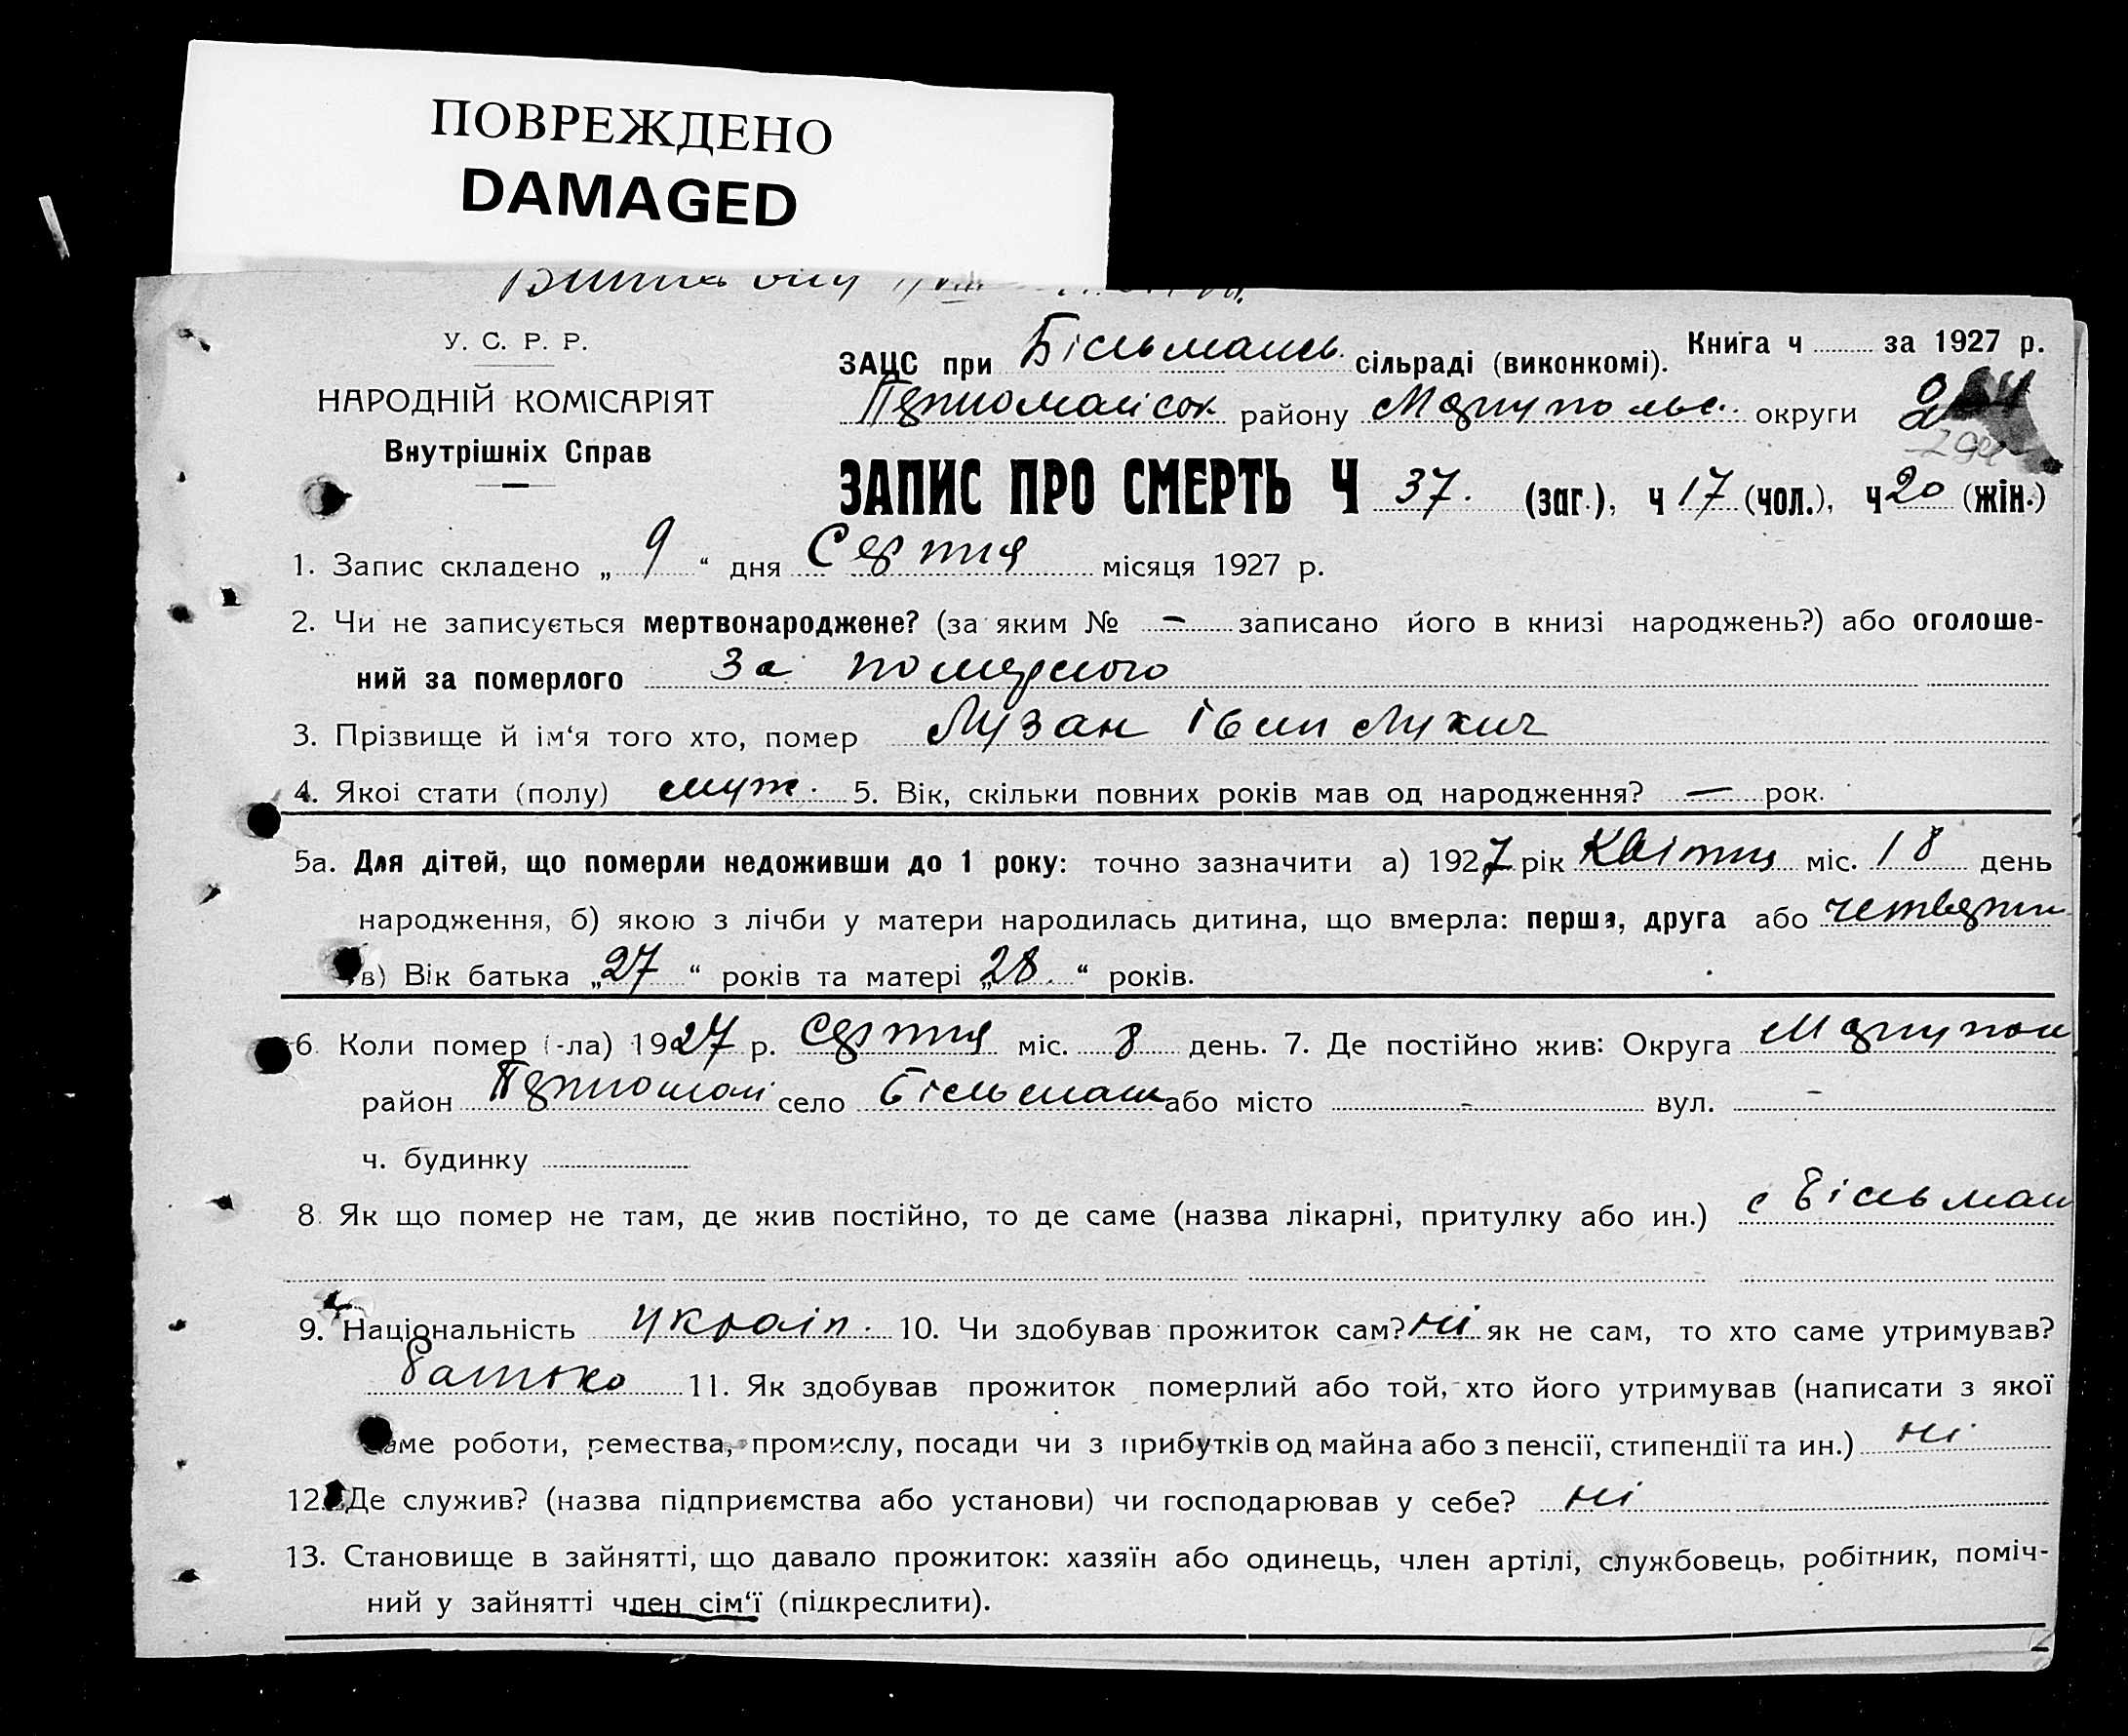 ПОВРЕЖДЕНО
DAMAGED
У. С. Р. Р.
НАРОДНІЙ КОМІСАРІЯТ
Внутрішніх Справ
ЗАЦС при Більмансь. сільраді (виконкомі). Книга ч за 1927 р.
Першомайсок району Маріупольс. округи
ЗАПИС ПРО СМЕРТЬ Ч 37. (заг.), ч 17 (чол.), ч 20 (жін.)
1. Запис складено „ 9 “ дня Серпня місяця 1927 р.
2. Чи не записується мертвонароджене? (за яким № – записано його в книзі народжень?) або оголоше-
ний за померлого За померлого
3. Прізвище й ім‘я того хто, помер Лузан Іван Лукич
4. Якоі стати (полу) муж. 5. Вік, скільки повних років мав од народження? — рок.
5а. Для дітей, що померли недоживши до 1 року: точно зазначити а) 1927 рік Квітня міс. 18 день
народження, б) якою з лічби у матери народилась дитина, що вмерла: перша, друга або четверта
в) Вік батька „27“ років та матері „28.“ років.
6. Коли помер (-ла) 1927 р. Серпня міс. 8 день. 7. Де постійно жив: Округа Маріупол
район Першомай село Більмаш або місто - вул. –
ч. будинку
8. Як що помер не там, де жив постійно, то де саме (назва лікарні, притулку або ин.) с Більмаш
9. Національність Україн. 10. Чи здобував прожиток сам? ні як не сам, то хто саме утримував?
батько 11. Як здобував прожиток померлий або той, хто його утримував (написати з якої
саме роботи, ремества, промислу, посади чи з прибутків од майна або з пенсії, стипендії та ин.) ні
12. Де служив? (назва підприємства або установи) чи господарював у себе? ні
13. Становище в зайнятті, що давало прожиток: хазяїн або одинець, член артілі, службовець, робітник, поміч-
ний у зайнятті член сім‘ї (підкреслити).